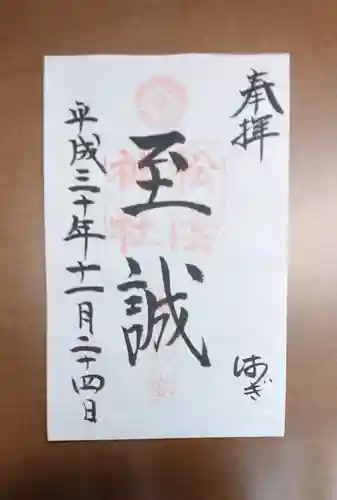 奉拝
はぎ
至誠
松陰神社
平成三十年十一月二十四日